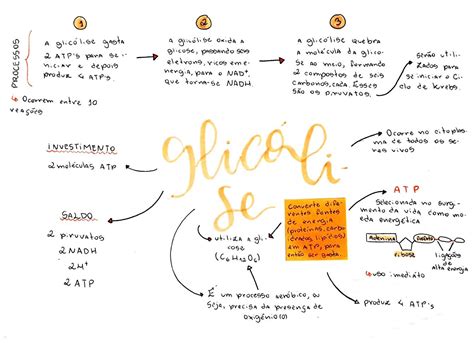 PROCESSOS
1
a glicólise gasta
2 ATP's para se
iniciar e depois
produz 4 ATP's.
2
a glicólise oxida a
glicose, passando seus
elétrons, ricos em e-
nergia, para o NAD⁺,
que torna-se NADH.
3
a glicólise quebra
a molécula da glico-
se ao meio, formando
2 compostos de seis
carbonos, cada. Esses
são os piruvatos.
serão utili-
zados para
se iniciar o Ci-
clo de Krebs.
Ocorrem entre 10
reações
INVESTIMENTO
2 moléculas ATP
SALDO
2 piruvatos
2 NADH
2 H⁺
2 ATP
glicóli-
se
Ocorre no citoplas-
ma de todos os se-
res vivos
Converte dife-
rentes fontes
de energia
(proteínas, carbo-
idratos, lipídios)
em ATP, para
então ser gasta.
ATP
Selecionada no surgi-
mento da vida como mo-
eda energética
Adenina
ribose
fosfato
ligações de
alta energia
uso: imediato
produz 4 ATP's
utiliza a gli-
cose
(C₆H₁₂O₆)
É um processo aeróbico, ou
seja, precisa da presença de
oxigênio (O)